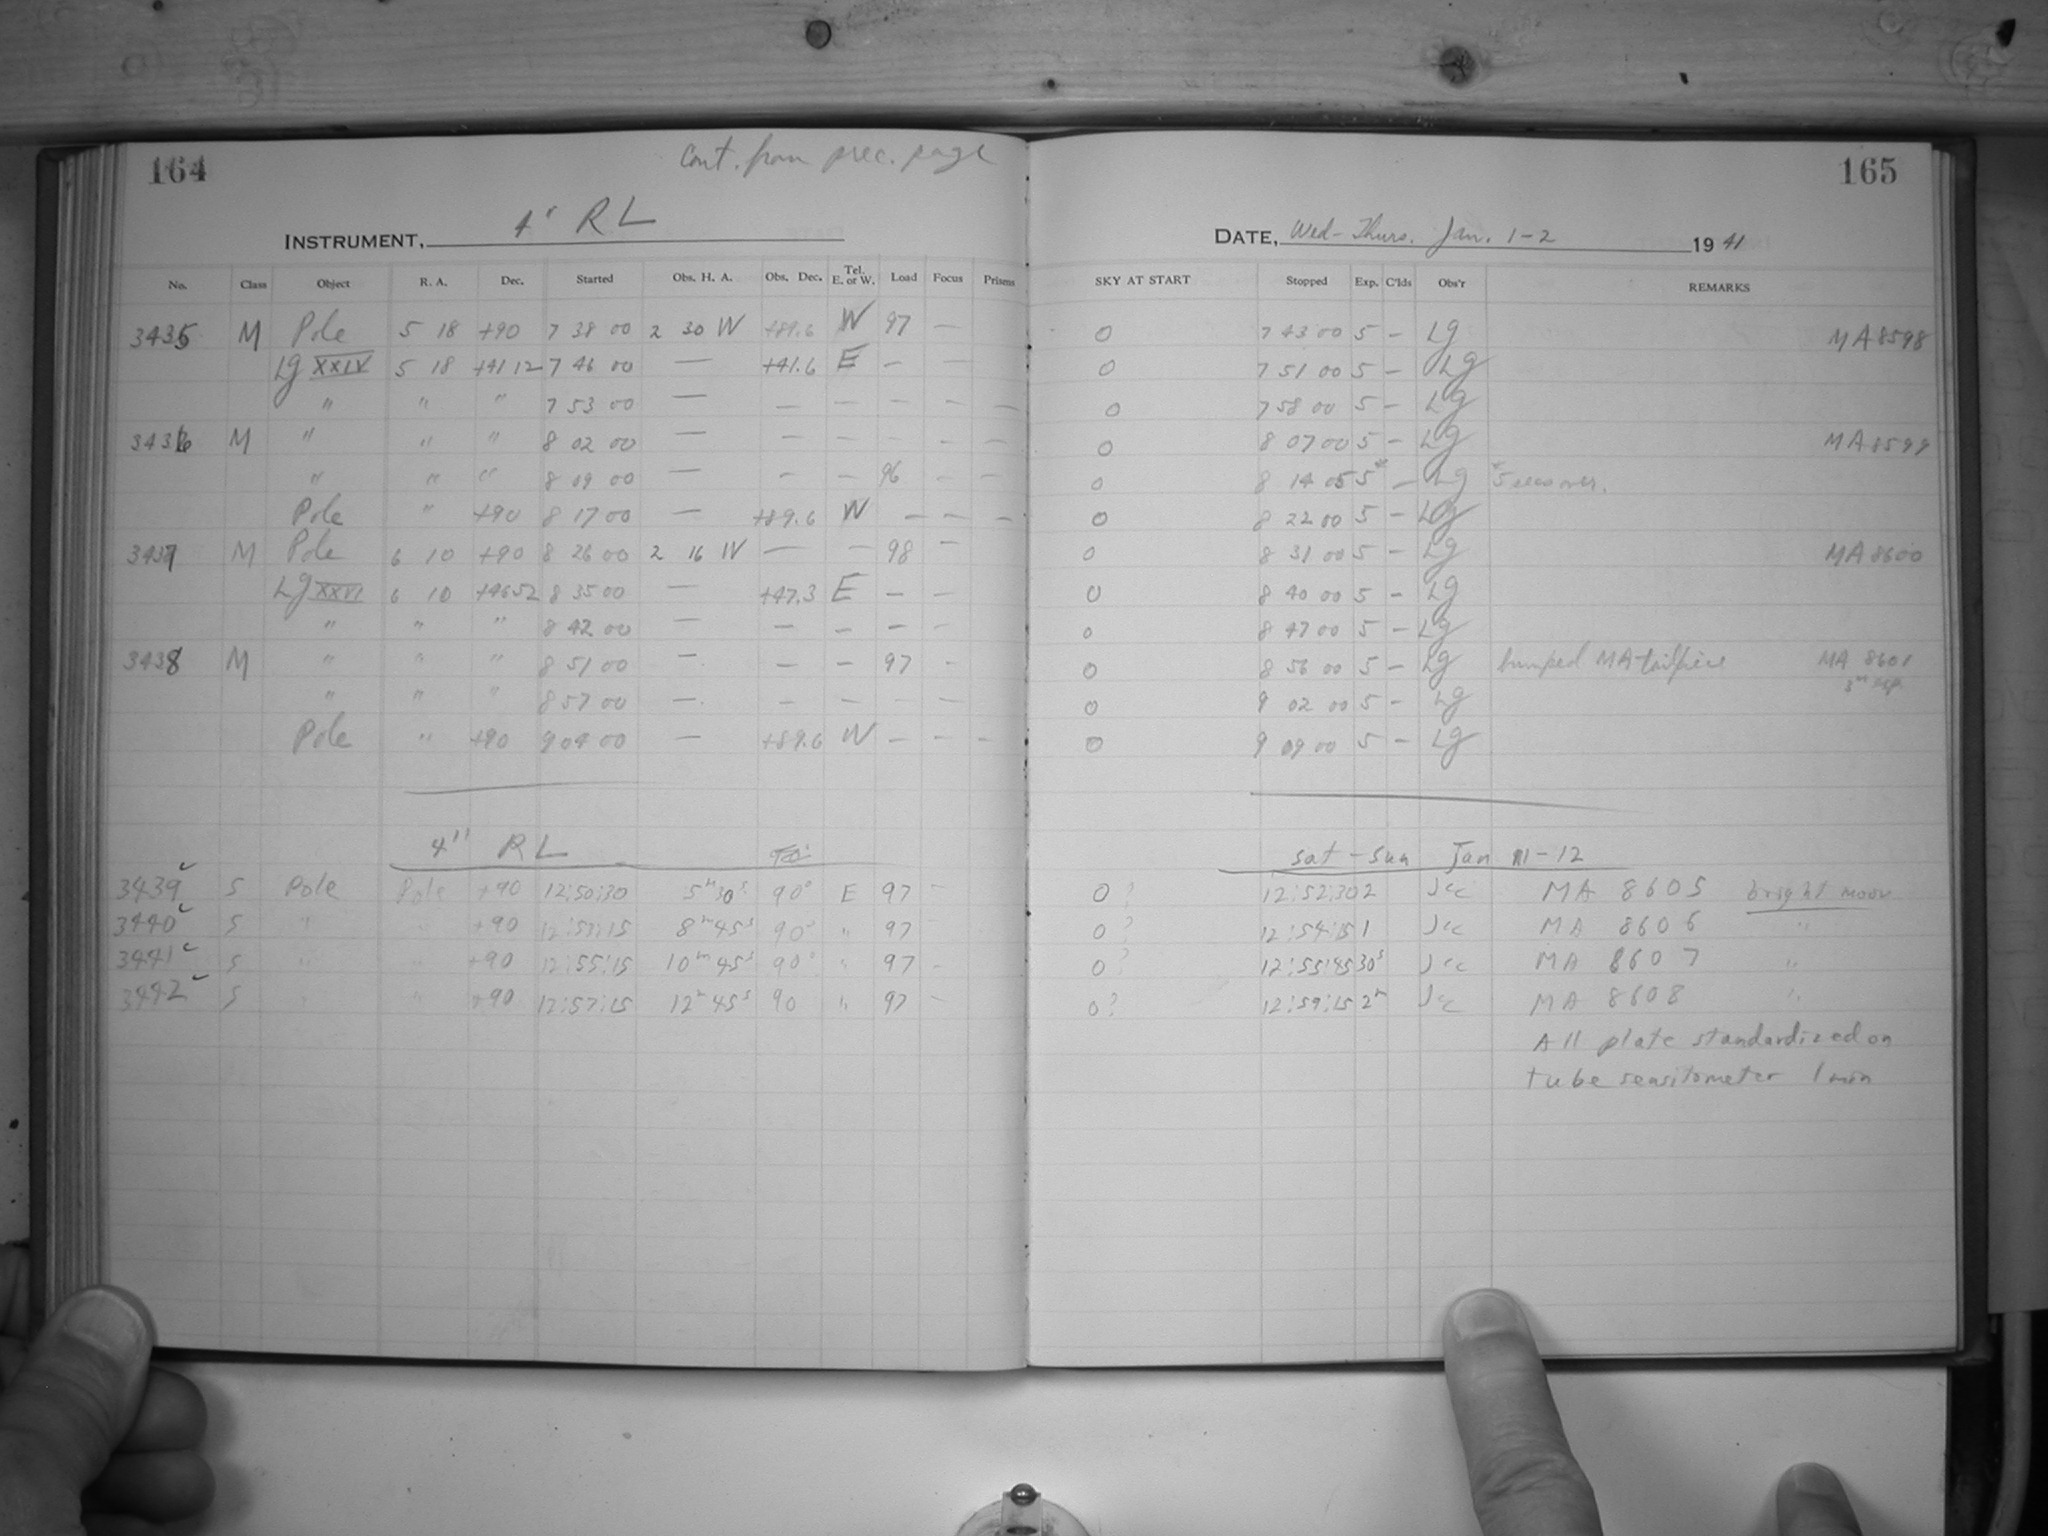 164
cont. from prec. page
INSTRUMENT, 4" RL
No. Class Object R. A. Dec. Started Obs. H. A. Obs. Dec. Tel. E. or W. Load Focus Prisms
3435 M Pole 5 18 +90 7 38 00 2 30 W +89.6 W 97 —
Lg XXIV 5 18 +41 12 7 46 00 — +41.6 E — —
" " " 7 53 00 — — — — — —
3436 M " " " 8 02 00 — — — — — —
" " " 8 09 00 — — — 96 — —
Pole " +90 8 17 00 — +89.6 W — — —
3437 M Pole 6 10 +90 8 26 00 2 16 W — — 98 —
Lg XXVI 6 10 +46 52 8 35 00 — +47.3 E — —
" " " 8 42 00 — — — — —
3438 M " " " 8 51 00 — — — 97 —
" " " 8 57 00 — — — — — —
Pole " +90 9 04 00 — +89.6 W — — —
4" RL
3439 S Pole Pole +90 12:50:30 5m30s 90° E 97 —
3440 S " " +90 12:53:15 8m45s 90° " 97
3441 S " " +90 12:55:15 10m45s 90° " 97 —
3442 S " " +90 12:57:15 12m45s 90 " 97 —
165
DATE, Wed-Thurs. Jan. 1-2 1941
SKY AT START Stopped Exp. C'lds Obs'r REMARKS
0 7 43 00 5 — Lg MA 8598
0 7 51 00 5 — Lg
0 7 58 00 5 — Lg
0 8 07 00 5 — Lg MA 8599
0 8 14 05 5* — Lg *5 secs over.
0 8 22 00 5 — Lg
0 8 31 00 5 — Lg MA 8600
0 8 40 00 5 — Lg
0 8 47 00 5 — Lg
0 8 56 00 5 — Lg bumped MA tailpiece MA 8601
0 9 02 00 5 — Lg
0 9 09 00 5 — Lg
Sat - Sun Jan 11-12
0? 12:52:30 2 Jcc MA 8605 bright moon
0? 12:54:15 1 Jcc MA 8606 "
0? 12:55:45 30s Jcc MA 8607 "
0? 12:59:15 2m Jcc MA 8608 "
All plate standardized on
tube sensitometer 1 min